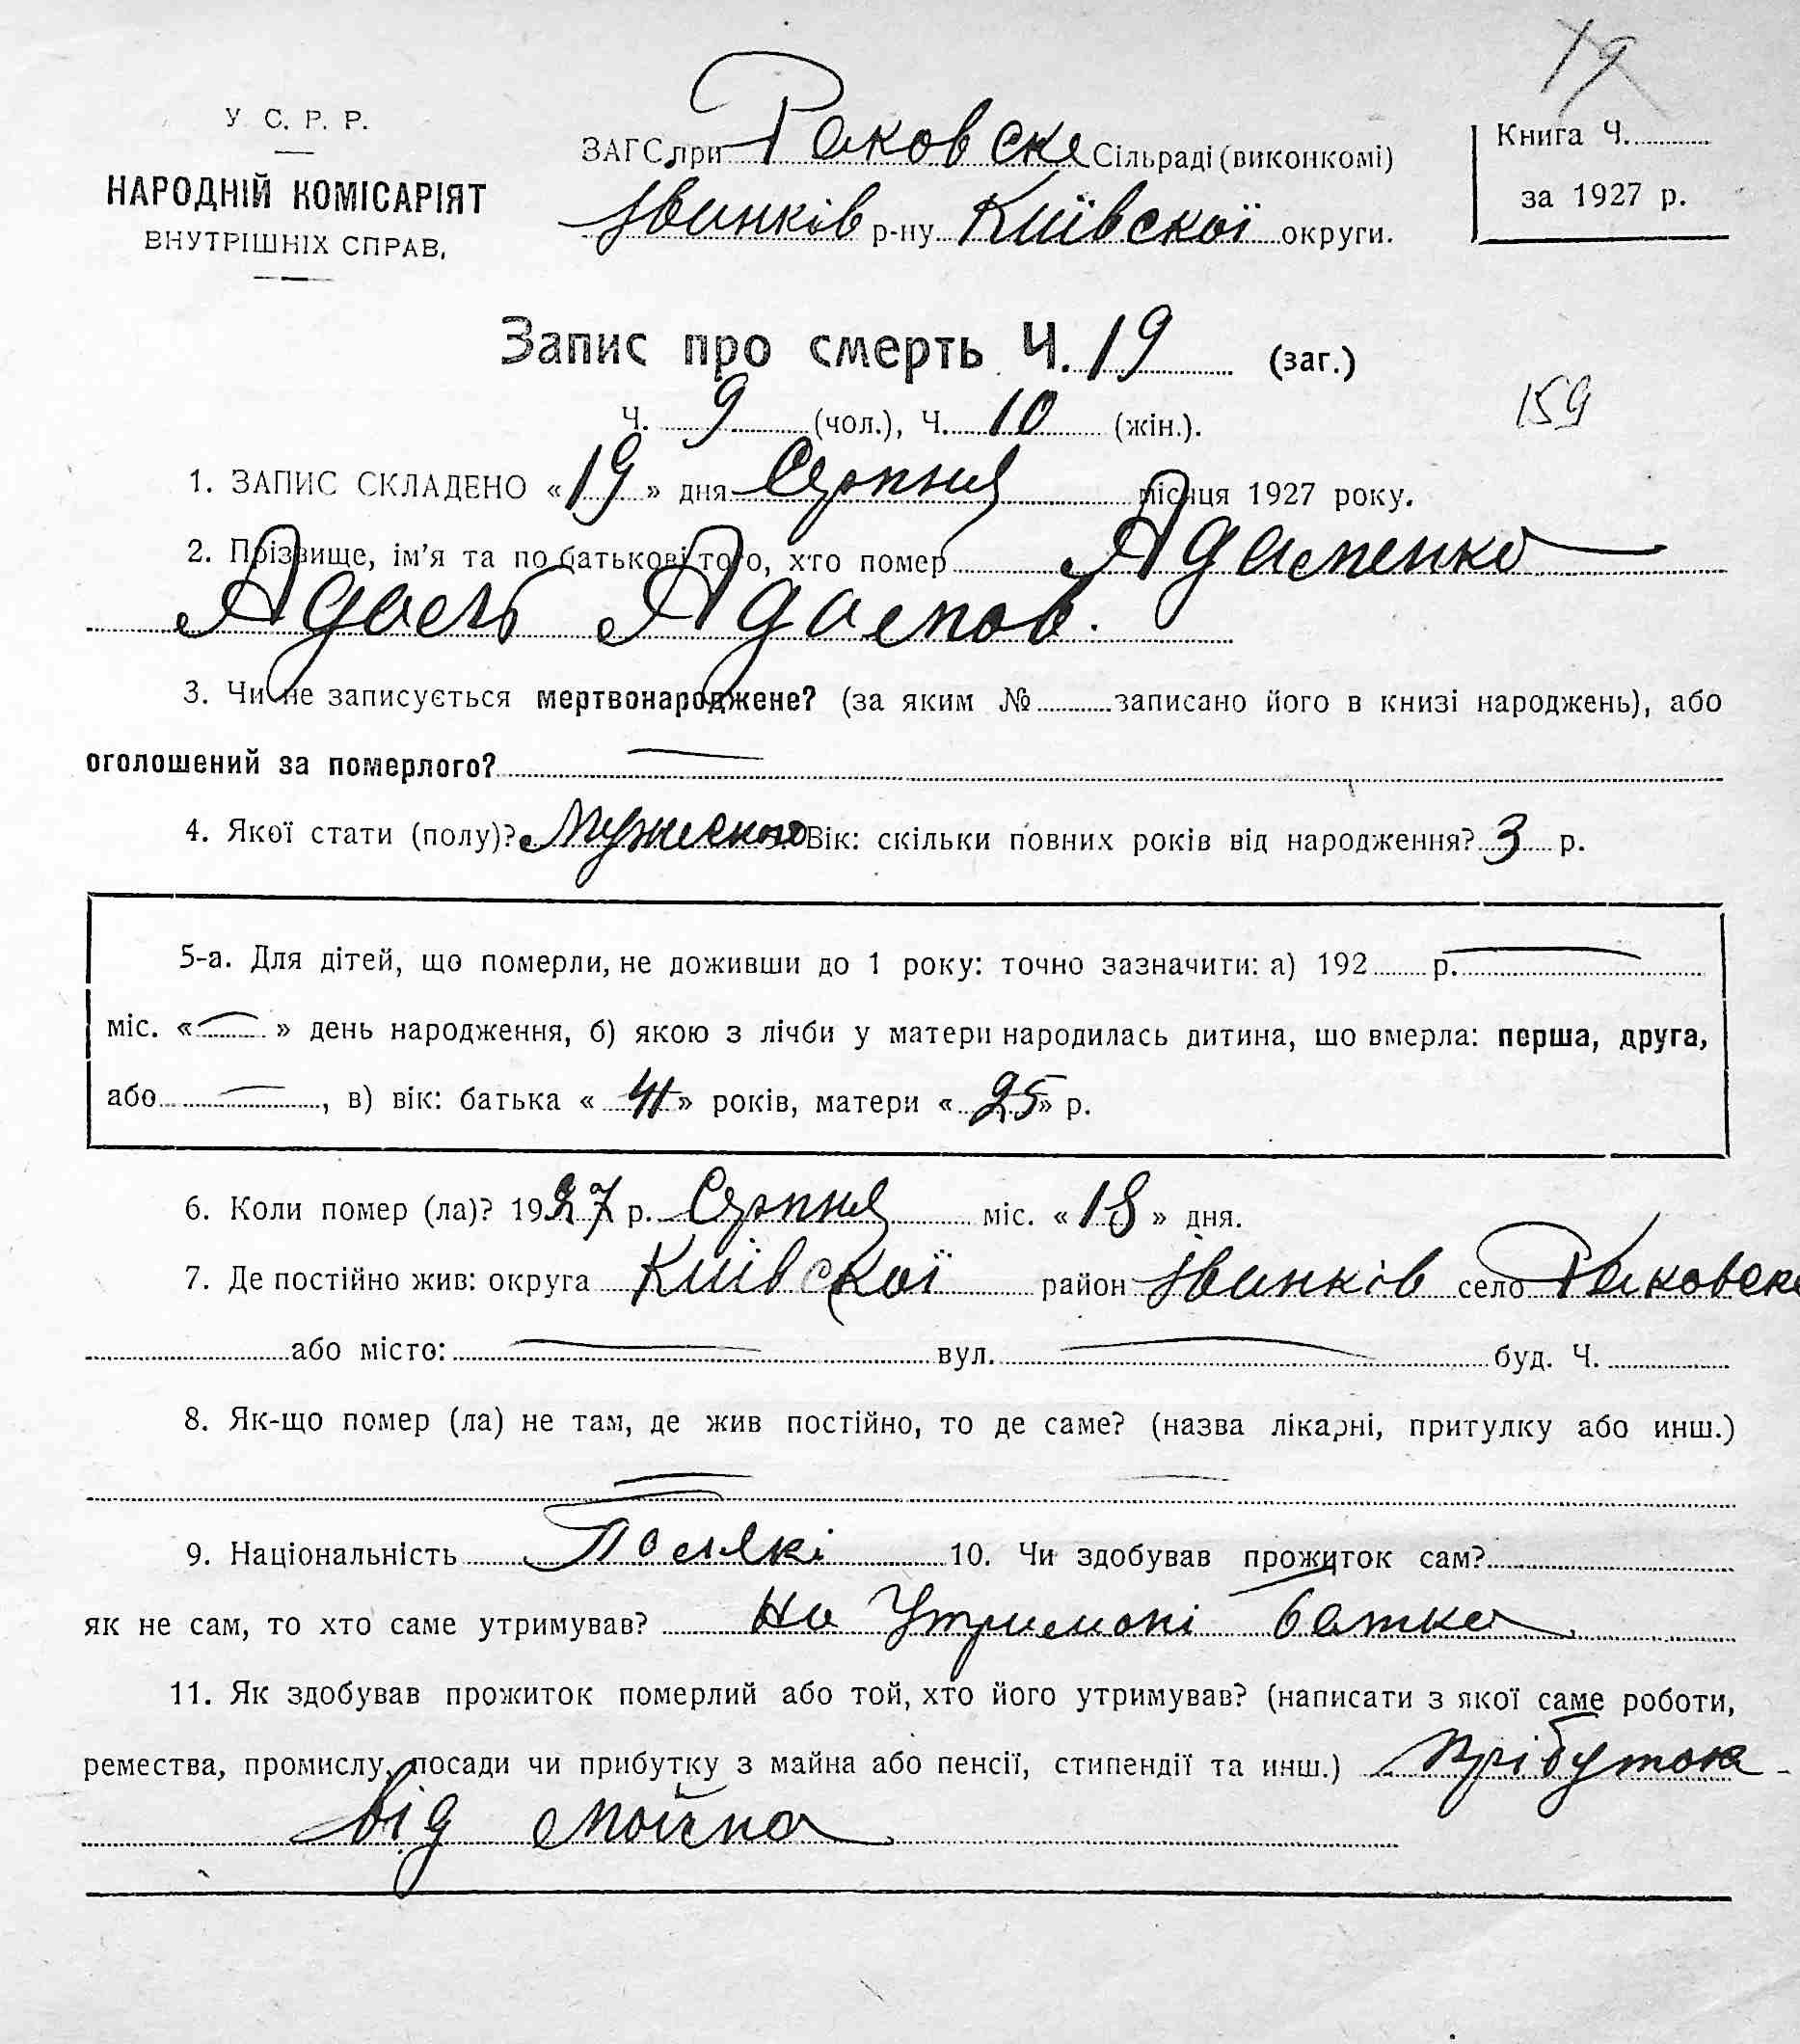 19
У. С. Р. Р.
НАРОДНІЙ КОМІСАРІЯТ
ВНУТРІШНІХ СПРАВ,
ЗАГС при Раковске Сільраді (виконкомі)
Іванків р-ну Київскої округи.
Книга Ч.
за 1927 р.
Запис про смерть Ч. 19 (заг.)
Ч. 9 (чол.), Ч. 10 (жін.).
159
1. ЗАПИС СКЛАДЕНО « 19 » дня Серпня місяця 1927 року.
2. Прізвище, ім’я та по батькові того, хто помер Адаменко
Адам Адамов.
3. Чи не записується мертвонароджене? (за яким № записано його в книзі народжень), або
оголошений за померлого?
4. Якої стати (полу)? Мужеского Вік: скільки повних років від народження? 3 р.
5-а. Для дітей, що померли, не доживши до 1 року: точно зазначити: а) 192 р.
міс. « » день народження, б) якою з лічби у матери народилась дитина, що вмерла: перша, друга,
або , в) вік: батька « 41 » років, матери « 25 » р.
6. Коли помер (ла)? 1927 р. Серпня міс. « 18 » дня.
7. Де постійно жив: округа Київскої район Іванків село Раковске
або місто: вул. буд. Ч.
8. Як-що помер (ла) не там, де жив постійно, то де саме? (назва лікарні, притулку або инш.)
9. Національність Поляки 10. Чи здобував прожиток сам?
як не сам, то хто саме утримував? На Утримані батка
11. Як здобував прожиток померлий або той, хто його утримував? (написати з якої саме роботи,
ремества, промислу, посади чи прибутку з майна або пенсії, стипендії та инш.) прібуток
від майна